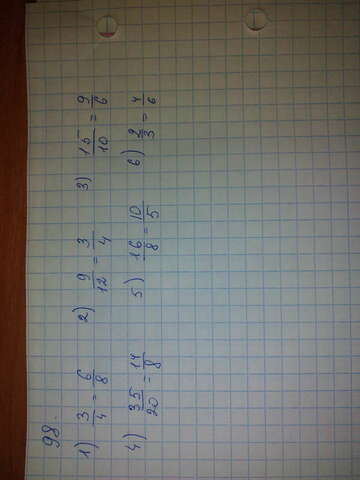 98.
1) 3/4 = 6/8 2) 9/12 = 3/4 3) 15/10 = 9/6
4) 35/20 = 14/8 5) 16/8 = 10/5 6) 2/3 = 4/6